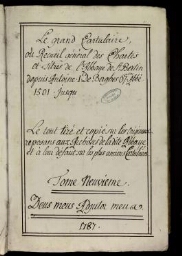 Le grand Cartulaire
ou Recueil général des Chartes
et Titres de l'Abbaye de St Bertin
depuis Antoine de Berghes Abbé
1501 jusqu
Le tout tiré et copié sur les originaux
reposans aux Archives de ladite Abbaye
et à leur défaut sur les plus anciens Cartulaires.
Tome Neuvieme.
Deus meus Adjutor meus
1787.